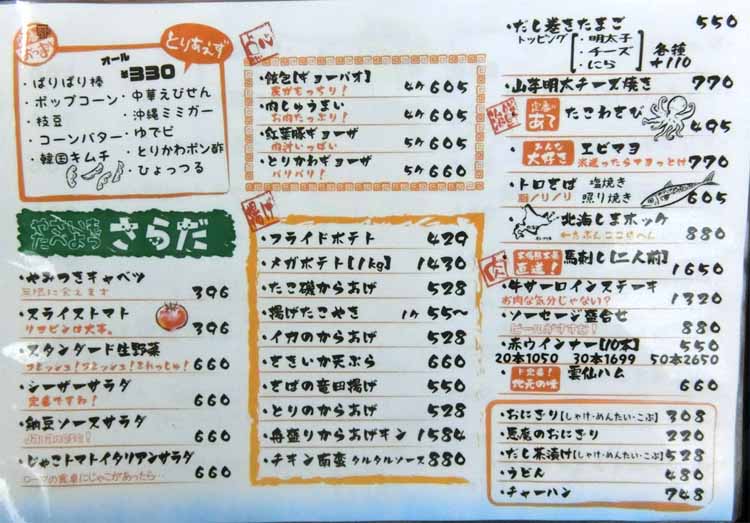 とりあえず
オール
¥330
・ぱりぱり棒
・ポップコーン
・枝豆
・コーンバター
・韓国キムチ
・中華えびせん
・沖縄ミミガー
・ゆでピ
・とりかわポン酢
・ひょっつる
さらだ
・やみつきキャベツ 396
無限に食えます
・スライストマト 396
リコピンは大事。
・スタンダード生野菜 660
・シーザーサラダ 660
定番ですわ!
・納豆ソースサラダ 660
・じゃこトマトイタリアンサラダ 660
ローマの食卓にじゃこがあったら…
・餃包[ギョーパオ] 4ケ 605
皮がもっちり!
・肉しゅうまい 4ケ 605
お肉たっぷり!
・紅葉豚ギョーザ 5ケ 605
肉汁いっぱい
・とりかわギョーザ 5ケ 660
パリパリ!
揚げ
・フライドポテト 429
・メガポテト[1kg] 1430
・たこ磯からあげ 528
・揚げたこやき 1ケ 55〜
・イカのからあげ 528
・さきいか天ぷら 660
・さばの竜田揚げ 550
・とりのからあげ 528
・舟盛りからあげキン 1584
・チキン南蛮 タルタルソース 880
・だし巻きたまご 550
トッピング
・明太子
・チーズ
・にら
各種
+110
・山芋明太チーズ焼き 770
定番の
あて
たこわさび 495
みんな
大好き
エビマヨ 770
・トロさば 塩焼き 照り焼き 605
脂ノリノリ
・北海しまホッケ 880
←たぶんここらへん
肉
直送!
馬刺し[二人前] 1650
・牛サーロインステーキ 1320
お肉な気分じゃない?
・ソーセージ盛合せ 880
ビールがすすむ!
・赤ウインナー[10本] 550
20本1050 30本1699 50本2650
ド定番!
地元の味
雲仙ハム 660
・おにぎり[しゃけ・めんたい・こぶ] 308
・悪魔のおにぎり 220
・だし茶漬け[しゃけ・めんたい・こぶ] 528
・うどん 480
・チャーハン 748